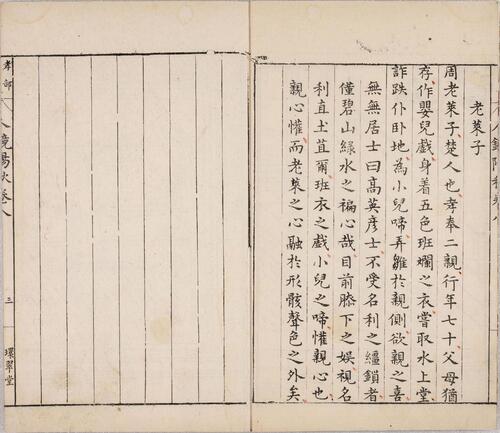 老萊子
周老萊子楚人也孝奉二親行年七十父母猶
存作嬰兒戲身着五色班斕之衣嘗取水上堂
詐跌仆卧地為小兒啼弄雛於親側欲親之喜
無無居士曰高英彦士不受名利之繮鎖者
僅碧山綠水之褊心哉目前膝下之娛視名
利直土苴爾班衣之戲小兒之啼懽親心也
親心懽而老萊之心融於形骸聲色之外矣
孝部
人鏡陽秋卷八
三
環翠堂